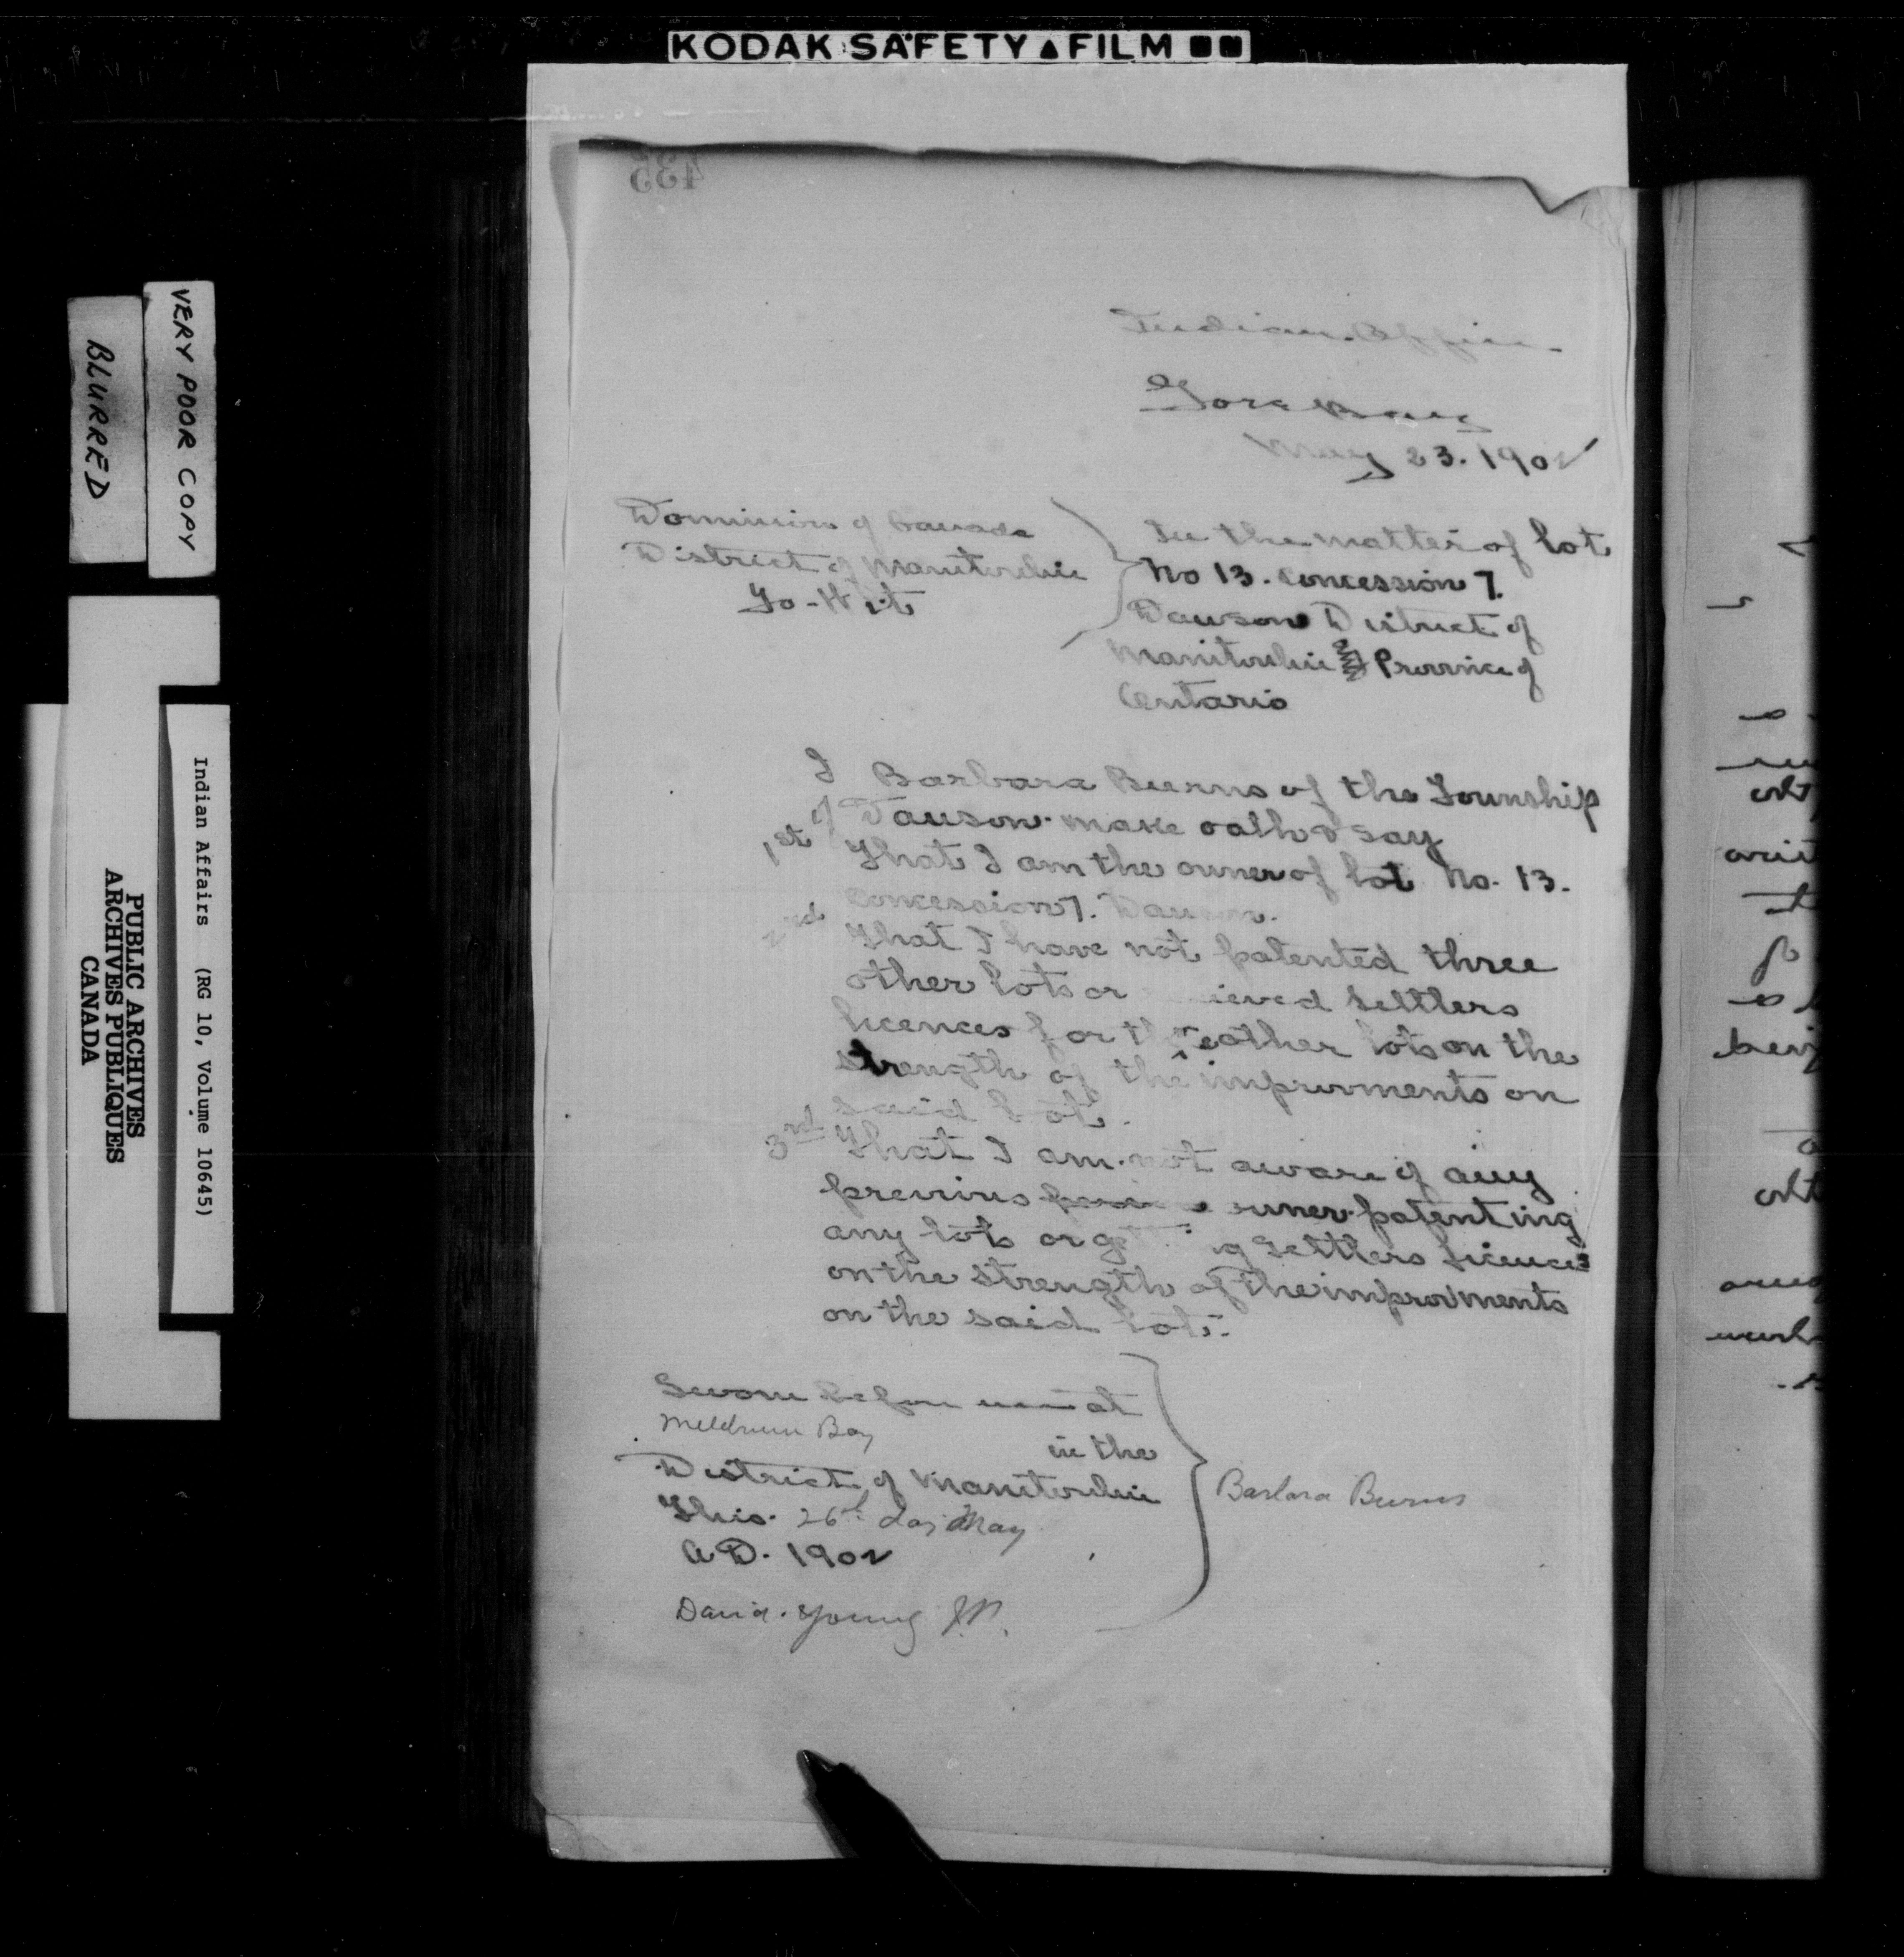 KODAK SAFETY ▲ FILM ■■
435
VERY POOR COPY
BLURRED
Indian Affairs (RG 10, Volume 10645)
PUBLIC ARCHIVES
ARCHIVES PUBLIQUES
CANADA
Indian Office
Gore Bay
May 23. 1902
Dominion of Canada
District of Manitoulin
To-Wit
In the matter of lot
No 13. Concession 7.
Dawson District of
Manitoulin Province of
Ontario
I Barbara Burns of the Township
of Dawson. make oath & say
1st That I am the owner of lot No. 13.
Concession 7. Dawson.
2nd That I have not patented three
other lots or ieved Settlers
licences for three other lots on the
strength of the improvments on
said lot.
3rd That I am not aware of any
previous owner patenting
any lots or getting Settlers Licences
on the strength of the improvments
on the said lot.
Sworn before me at
Meldrum Bay
in the
District of Manitoulin
This 26th day May
A.D. 1902
Barbara Burns
David. Young J.P.